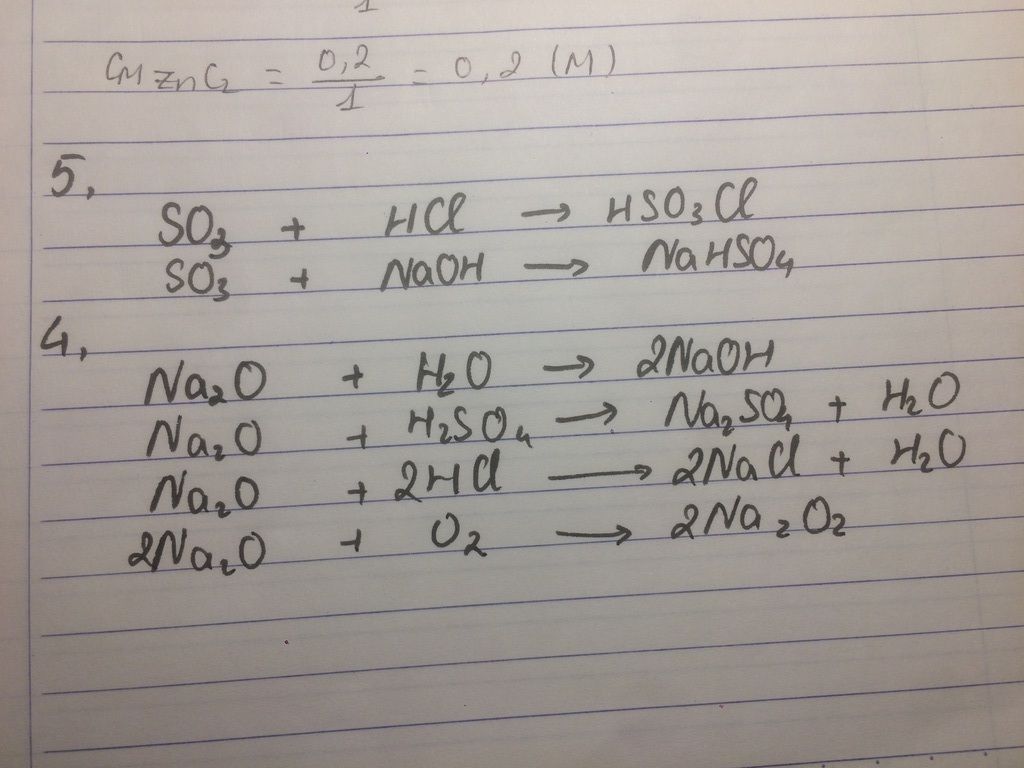 C_M ZnCl₂ = 0,2/1 = 0,2 (M)
5,
SO₃ + HCl → HSO₃Cl
SO₃ + NaOH → NaHSO₄
4,
Na₂O + H₂O → 2NaOH
Na₂O + H₂SO₄ → Na₂SO₄ + H₂O
Na₂O + 2HCl → 2NaCl + H₂O
2Na₂O + O₂ → 2Na₂O₂